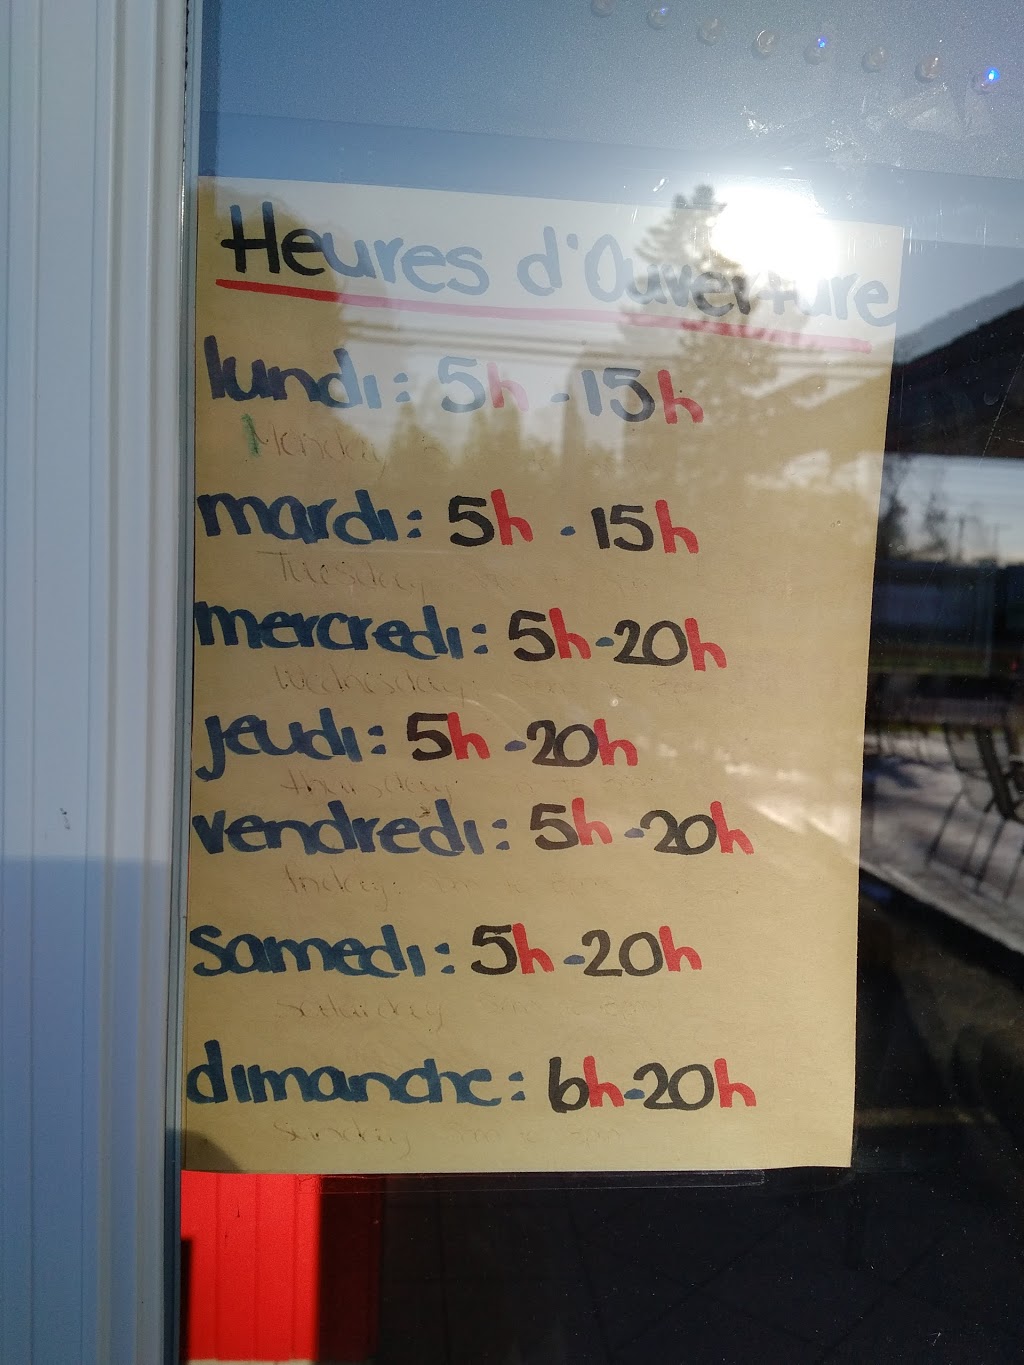 Heures d'Ouverture
lundi: 5h - 15h
Monday
mardi: 5h - 15h
Tuesday
mercredi: 5h - 20h
Wednesday
jeudi: 5h - 20h
thursday
vendredi: 5h - 20h
friday:
samedi: 5h - 20h
saturday
dimanche: 6h - 20h
Sunday